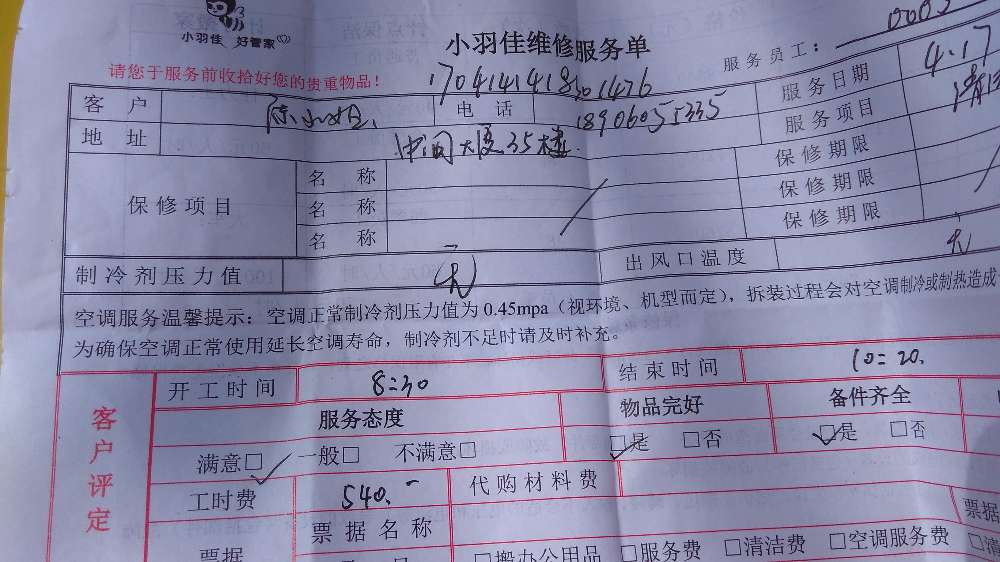 小羽佳 好管家
小羽佳维修服务单
服务员工: 0005
请您于服务前收拾好您的贵重物品!
客户 陈小姐 电话 18906055335 服务日期 4.17
地址 中闽大厦35楼 服务项目
保修项目 名称 保修期限
名称 保修期限
名称 保修期限
制冷剂压力值 无 出风口温度 无
空调服务温馨提示:空调正常制冷剂压力值为0.45mpa(视环境、机型而定),拆装过程会对空调制冷或制热造成
为确保空调正常使用延长空调寿命,制冷剂不足时请及时补充。
客户评定
开工时间 8:30 结束时间 10:20.
服务态度 物品完好 备件齐全
满意□ 一般□ 不满意□ □是 □否 □是 □否
工时费 540.- 代购材料费
票据 票据名称 票据
□搬办公用品 □服务费 □清洁费 □空调服务费